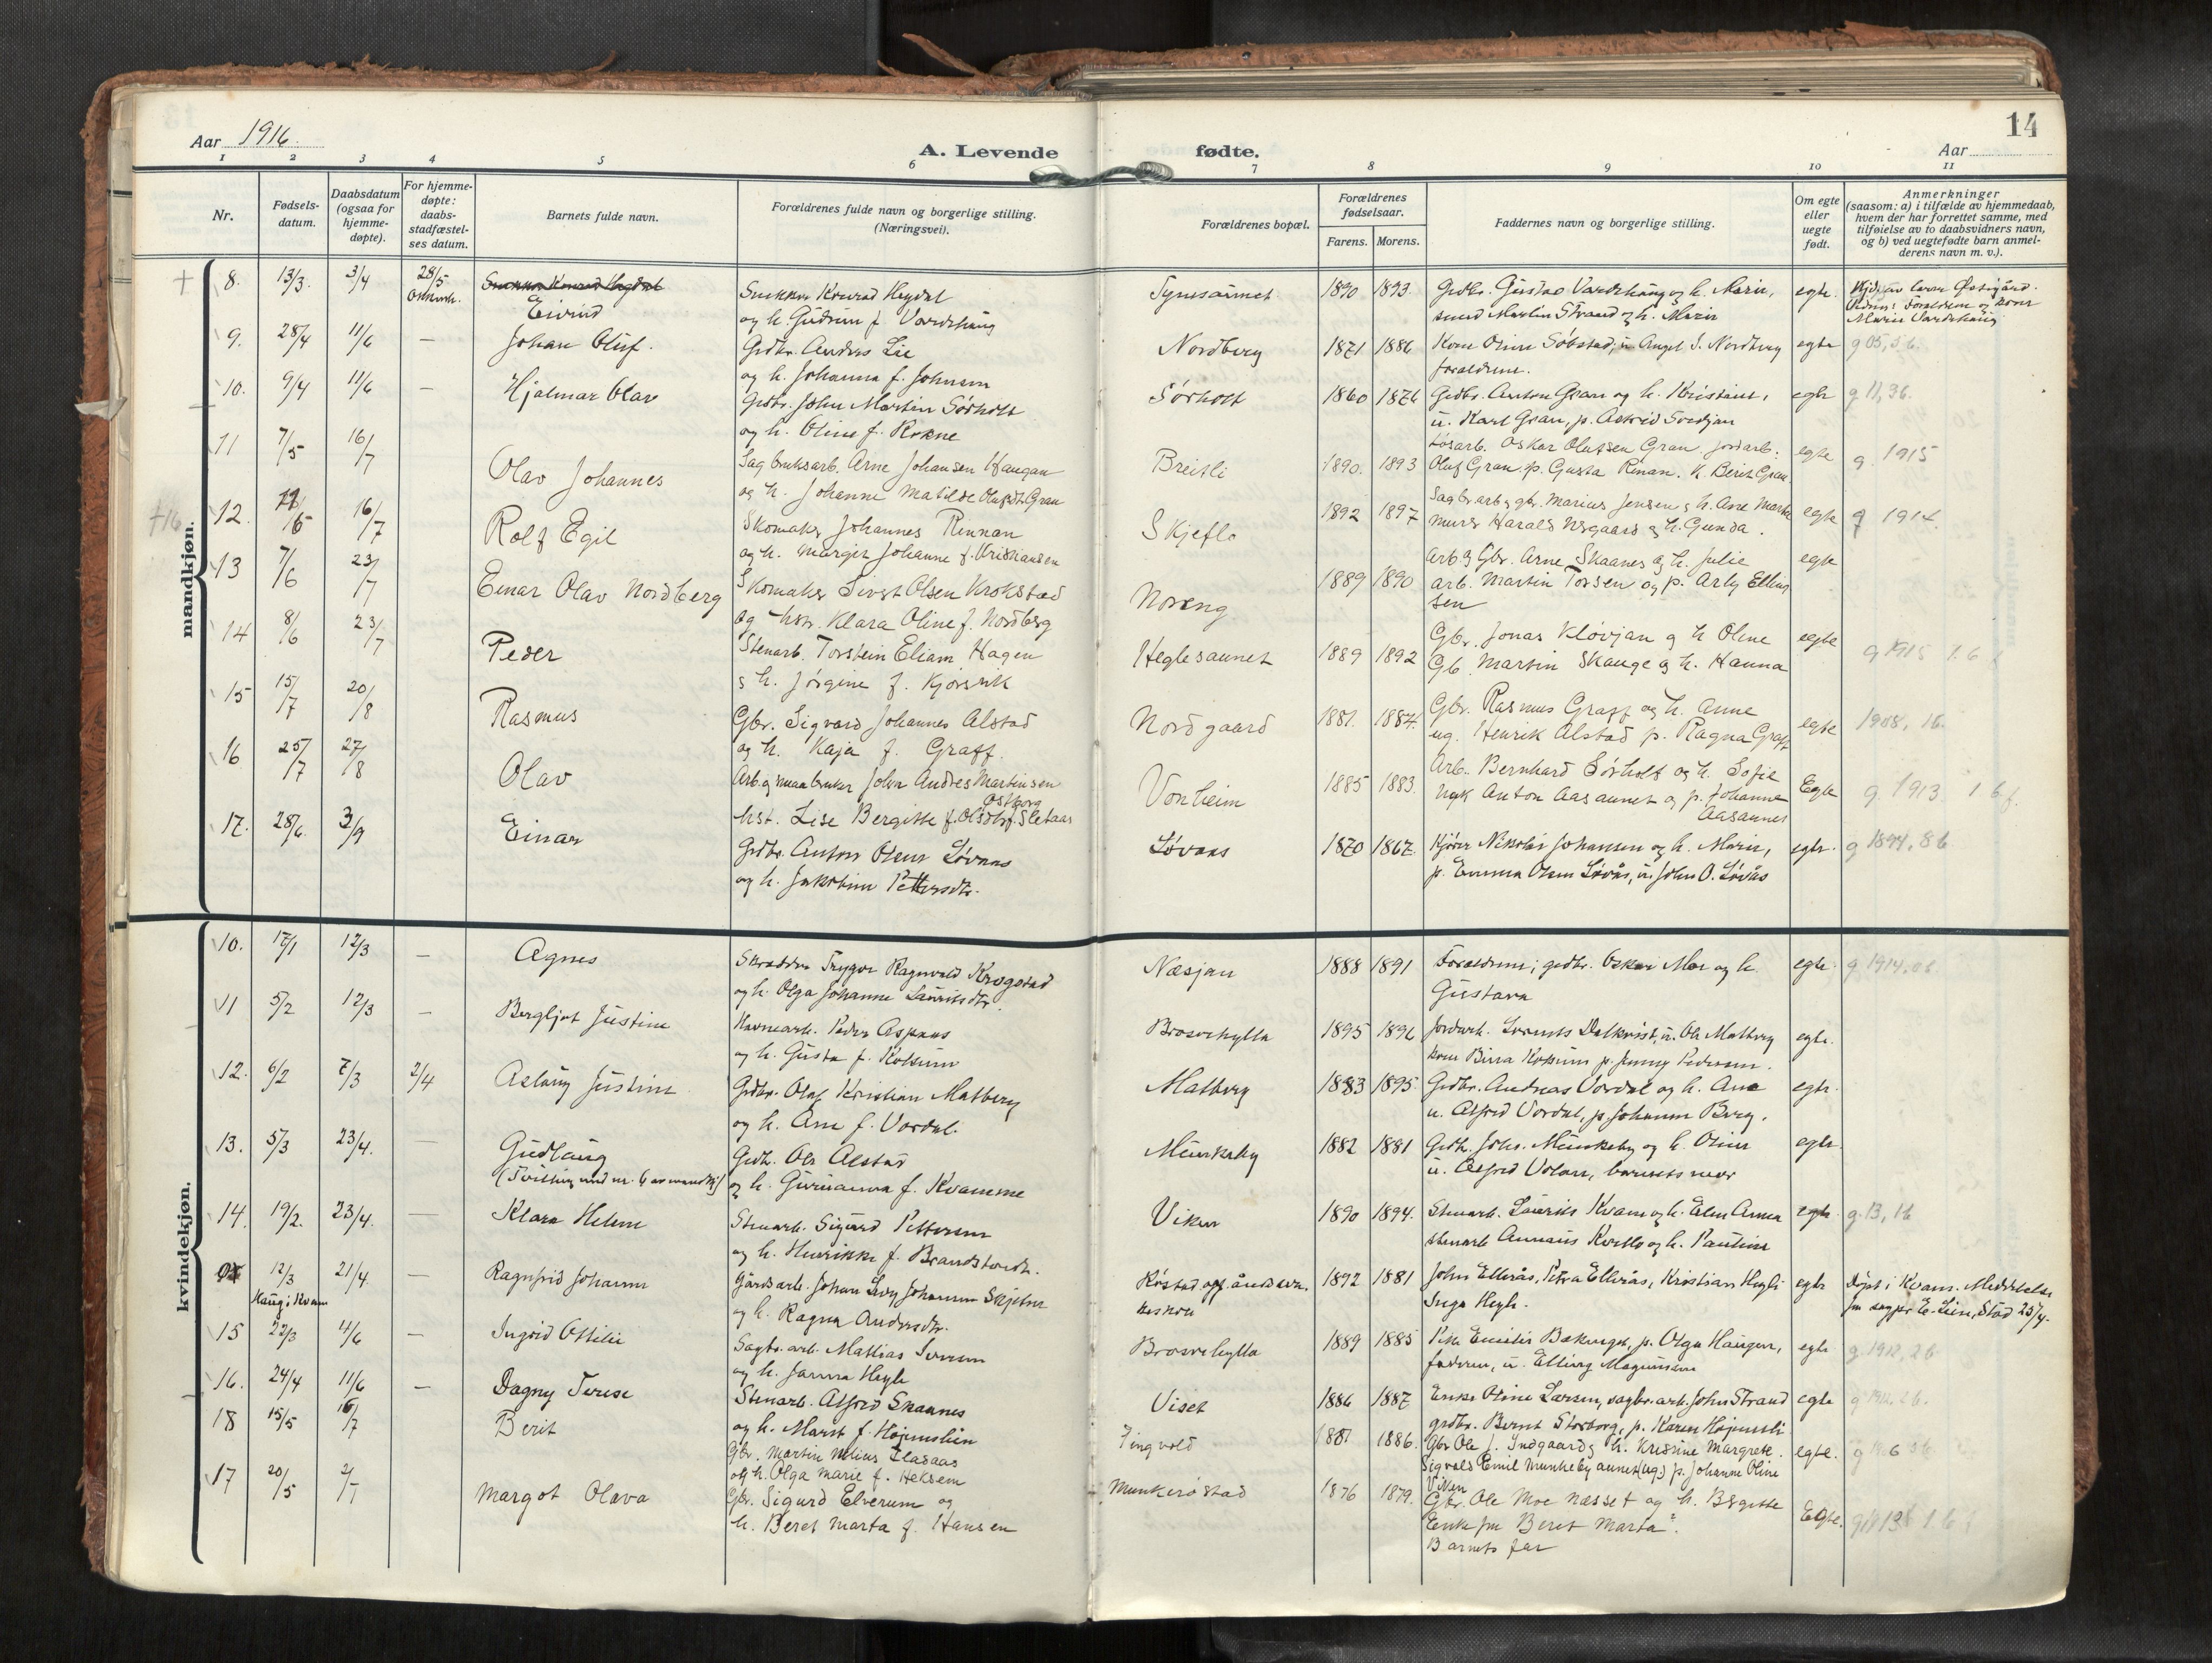 14
Aar 1916.
A. Levende fødte.
Aar
1 2 3 4 5 6 7 8 9 10 11
Nr.
Fødsels-
datum.
Daabsdatum
(ogsaa for
hjemme-
døpte).
For hjemme-
døpte:
daabs-
stadfæstel-
ses datum.
Barnets fulde navn.
Forældrenes fulde navn og borgerlige stilling.
(Næringsvei).
Forældrenes bopæl.
Forældrenes
fødselsaar.
Farens. Morens.
Faddernes navn og borgerlige stilling.
Om egte
eller
uegte
født.
Anmerkninger
(saasom: a) i tilfælde av hjemmedaab,
hvem der har forrettet samme, med
tilføielse av to daabsvidners navn,
og b) ved uegtefødte barn anmel-
derens navn m. v.).
mandkjøn.
8. 13/3. 3/4 28/5
Eivind
Snekker Konrad Hegdal
og h. Gudrun f. Vardehaug
1890 1893.
Grdbr. Gustav Vardehaug og h. Marie,
smed Martin Strand og h. Marie
egte.
9. 28/4 11/6 —
Johan Oluf.
Grdbr. Anders Lie
og h. Johanna f. Johnsen
Nordberg
1871 1886
Kone Oline Søbstad, u. Angel S. Nordberg
forældrene.
egte
10. 9/4 11/6 —
Hjalmar Olav
Grdbr. John Martin Sørholt
og h. Oline f. Rokne
Sørholt
1860 1876
Grdbr. Anton Gran og h. Kristine,
u. Karl Gran, p. Astrid
egte g 11, 36.
11 7/5 16/7
Olav Johannes
Sagbruksarb. Arne Johansen Haugan
og h. Johanne Matilde Olufsdt. Gran
Breitli
1890. 1893
Løsarb. Oskar Olufsen Gran jordarb.
Oluf Gran. p. Gusta Rinan. K. Berit Gran.
egte g. 1915
12. 16/7
Rolf Egil
Skomaker Johannes Rinnan
og h. Margit Johanne f. Kristiansen
Skjeflo
1892 1897
Sagbr.arb. gbr. Marius Jensen g h. Ane Marta
murer Harald Nsgaard g h. Gunda.
egte g 1914.
13 7/6 23/7
Einar Olav Nordberg
Skomaker Sivert Olsen Krokstad
og hstr. Klara Oline f. Nordberg
Noreng
1889 1890
Arb. g Gbr. Arne Skaanes og h. Julie
arb. Martin Torsen og p. Arly Ellings
sen
egte
14 8/6 23/7
Peder
Stenarb. Torstein Eliam Hagen
g h. Jørgine f. Kjorsvik
Heglesaunet
1889 1892
Gbr. Jonas Kløvjan g h Oline
Gb. Martin Skauge g h. Hanna
egte g 1915
15 15/7 20/8
Rasmus
Gbr. Sigvard Johannes Alstad
og h. Kaja f. Graff.
Nordgaard
1881. 1884.
Gbr. Rasmus Graff og h. Anne
ug. Henrik Alstad p. Ragna Graff
egte 1908, 16.
16 25/7 27/8
Olav
Arb. g maabruker John Andres Martinsen
Østborg
hst. Lise Bergitte f. Olsdtr. Sletaas
Vonheim
1885 1883.
Arb. Bernhard Sørholt og h. Sofie
Ugk Anton Aasaunet og p. Johanna
Aasaunet
Egte g 1913
17. 28/6. 3/9
Einar
Grdbr. Anton Olsen Løvaas
og h. Jakobine Pettersdtr.
Løvaas
1870 1867.
Kjører Nikolai Johansen og h. Marie,
p. Emma Olsen Løvås, u. John O. Løvås
egte. g 1894. 8 b
kvindekjøn.
10. 17/1 12/3 —
Agnes
Skrædder Trygve Ragnvald Krogstad
og h. Olga Johanne Lauritsdtr.
Næsjan
1888 1891
Forældrene; grdbr. Oskar Moe og h.
Gustava
egte.
11 5/2 12/3 —
Bergljot Justine
Havnearb. Peder Aspaas
og h. Gusta f. Kolsum
Brasvehylla
1895 1896
p. Jenny Pedersen.
egte.
12. 6/2 7/3 2/4
Aslaug Justine
Grdbr. Olaf Kristian Malberg
og h. Ane f. Vordal.
Malberg
1883 1895
Grdbr. Andreas Vordal og h. Ane
u. Alfred Vordal, p. Johanna Berg.
egte.
13. 5/3 23/4. —
Gudlaug
(Tvilling med nr. 6 av mandkj.)
Grdbr. Ole Alstad
og h. f. Kvamme
Munkeby
1882 1881
Grdbr. Johs. Munkeby og h. Oline
u. Alfred Volan, barnets mor
egte.
14. 19/2. 23/4. —
Klara Helene
Stenarb. Sigurd Pettersen
og h. Henrikke f. Brandstordt.
Viken
1890 1894.
Stenarb. Laurits Kvam og h. Elen Anna
stenarb. Annæus Kvello og h. Pauline
egte. g. 13, 16
12/3 21/4. —
Haug i Kvam
Ragnfrid Johanne
Gårdsarb. Johan Levy Johansen Skjelbr
og h. Ragna Andersdtr.
1892 1881
John Ellevås, Petra Ellevås, Kristian Hegli
Inga Hegle.
egte
Døpt i Kvam. Meddelelse
fra sogpr. E. Lein, Stod 25/4.
15 22/3 4/6 —
Ingrid Ottilie
Sagbr. arb. Mathias Iversen
og h. Janna Hegle
Brasvehylla
1889 1885
Pike Emilie p. Olga Haugen,
faderen, u. Elling Magnussen
egte g 1912, 2 b
16. 24/4 11/6 —
Dagny Terese
Stenarb. Alfred Skaanes
og h. Marit f. Højemslien
Viset
1886 1887
Enke Oline Larsen, sagbr. arb. John Strand
grdbr. Bernt Storborg, p. Karen Højemsli
egte
18 15/5 16/7
Berit
Gbr. Martin Nelius Elvsaas
og h. Olga Marie f. Heksem
Tingvold
1881 1886.
Gbr Ole J. Indgaard g h. Kristine Margrete.
Sigvald Emil Munkeby aunet (ug.) p. Johanne Oline
Viken
egte.
17 20/5 2/7
Margot Olava
Gbr. Sigurd Elverum og
h. Beret Marta f. Hansen
Munkerøstad
1876 1879.
Gbr. Ole Moe Næsset og h. Bergitte
Enkefru Beret Marta
Barnets far
Egte.